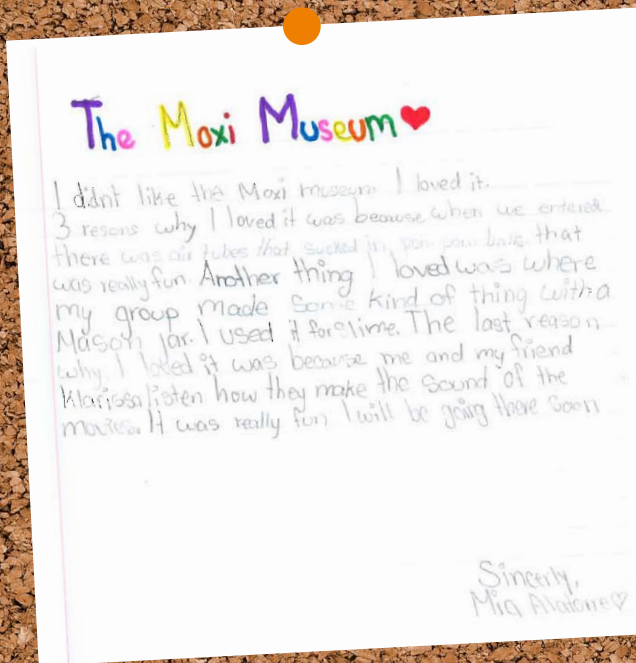 The Moxi Museum
I didnt like the Moxi museum I loved it.
3 resons why I loved it was because when we entered
there was air tubes that sucked in pom pom balls that
was really fun. Another thing I loved was where
my group made some kind of thing with a
Mason jar. I used it for slime. The last reason
why I loved it was because me and my friend
Klarissa listen how they make the sound of the
movies. It was really fun I will be going there soon
Sincerly,
Mia Alatorre